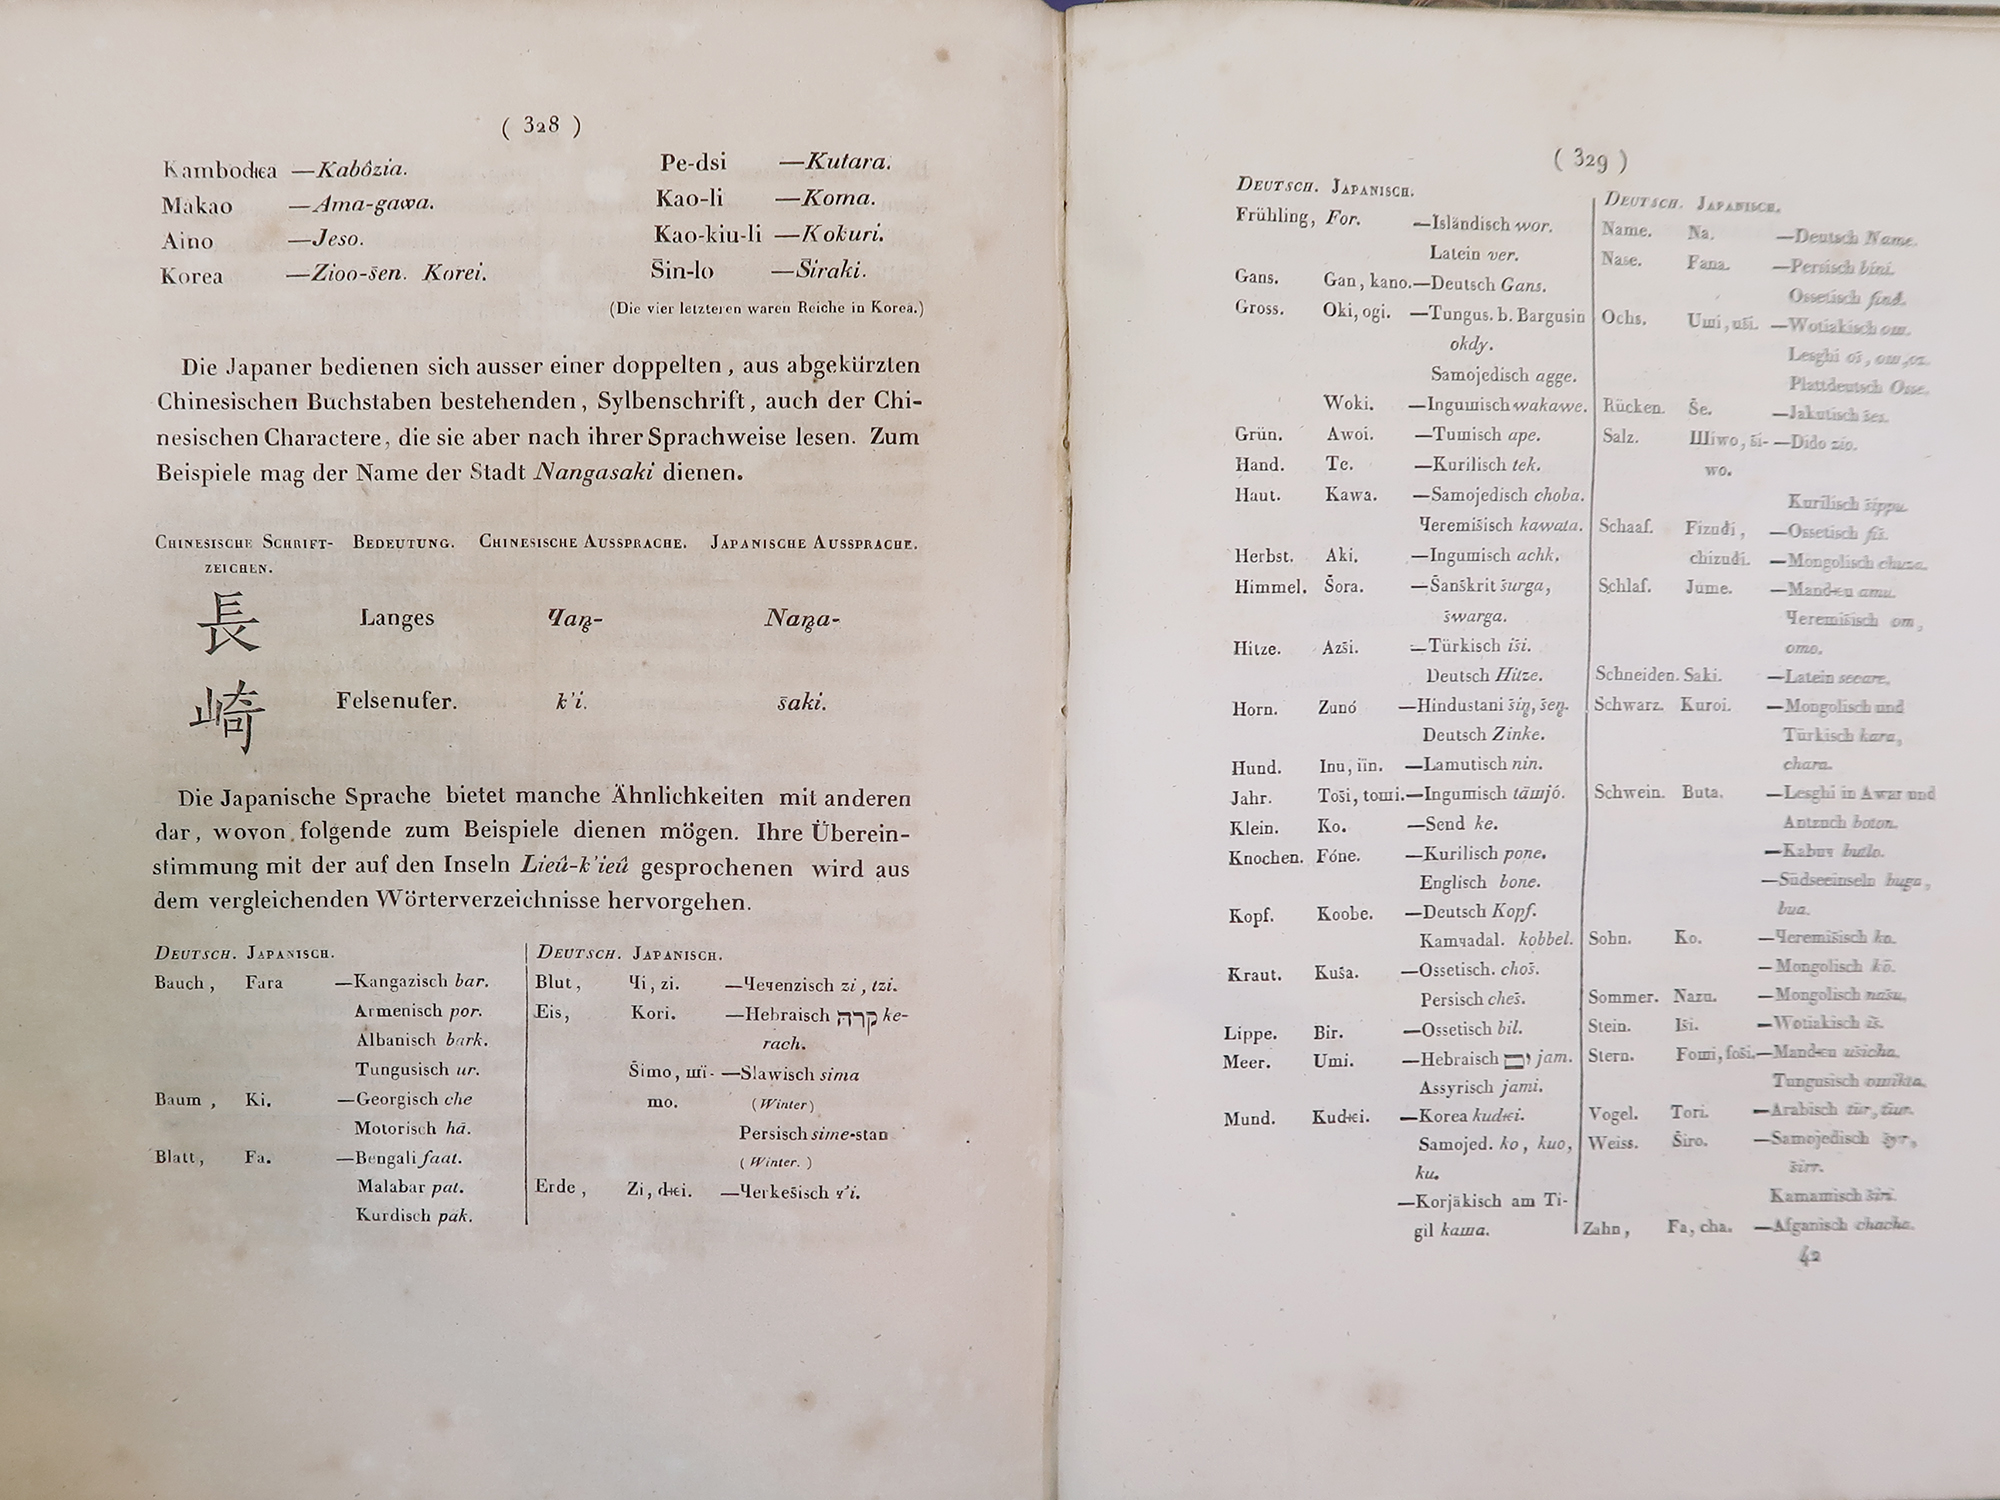 ( 328 )
Kambodιєa —Kabôzia. Pe-dsi —Kutara.
Makao —Ama-gawa. Kao-li —Koma.
Aino —Jeso. Kao-kiu-li —Kokuri.
Korea —Zioo-s̄en. Korei. S̄in-lo —S̄iraki.
(Die vier letzteren waren Reiche in Korea.)
Die Japaner bedienen sich ausser einer doppelten, aus abgekürzten
Chinesischen Buchstaben bestehenden, Sylbenschrift, auch der Chi-
nesischen Charactere, die sie aber nach ihrer Sprachweise lesen. Zum
Beispiele mag der Name der Stadt Nangasaki dienen.
CHINESISCHE SCHRIFT- BEDEUTUNG. CHINESISCHE AUSSPRACHE. JAPANISCHE AUSSPRACHE.
ZEICHEN.
長 Langes Чaꞑ- Naꞑa-
崎 Felsenufer. k'i. s̄aki.
Die Japanische Sprache bietet manche Ähnlichkeiten mit anderen
dar, wovon folgende zum Beispiele dienen mögen. Ihre Überein-
stimmung mit der auf den Inseln Lieû-k'ieû gesprochenen wird aus
dem vergleichenden Wörterverzeichnisse hervorgehen.
DEUTSCH. JAPANISCH.
Bauch, Fara —Kangazisch bar.
Armenisch por.
Albanisch bark.
Tungusisch ur.
Baum, Ki. —Georgisch che
Motorisch hä.
Blatt, Fa. —Bengali faat.
Malabar pat.
Kurdisch pak.
DEUTSCH. JAPANISCH.
Blut, Чi, zi. —Чeчenzisch zi, tzi.
Eis, Kori. —Hebraisch קרה ke-
rach.
S̄imo, шi- —Slawisch sima
mo. (Winter)
Persisch sime-stan
(Winter.)
Erde, Zi, dιєi. —Чerkes̄isch ч'i.
( 329 )
DEUTSCH. JAPANISCH.
Frühling, For. —Isländisch wor.
Latein ver.
Gans. Gan, kano.—Deutsch Gans.
Gross. Oki, ogi. —Tungus. b. Bargusin
okdy.
Samojedisch agge.
Woki. —Inguшisch wakawe.
Grün. Awoi. —Tuшisch ape.
Hand. Te. —Kurilisch tek.
Haut. Kawa. —Samojedisch choba.
Чeremis̄isch kawata.
Herbst. Aki. —Inguшisch achk.
Himmel. S̄ora. —S̄ans̄krit s̄urga,
s̄warga.
Hitze. Azs̄i. —Türkisch is̄i.
Deutsch Hitze.
Horn. Zunó —Hindustani s̄iꞑ, s̄eꞑ.
Deutsch Zinke.
Hund. Inu, ïin. —Lamutisch nin.
Jahr. Tos̄i, toшi.—Inguшisch täшjó.
Klein. Ko. —Send ke.
Knochen. Fóne. —Kurilisch pone.
Englisch bone.
Kopf. Koobe. —Deutsch Kopf.
Kamчadal. kobbel.
Kraut. Kus̄a. —Ossetisch. chos̄.
Persisch ches̄.
Lippe. Bir. —Ossetisch bil.
Meer. Umi. —Hebraisch ים jam.
Assyrisch jami.
Mund. Kudιєi. —Korea kudιєi.
Samojed. ko, kuo,
ku.
—Korjäkisch am Ti-
gil kaшa.
DEUTSCH. JAPANISCH.
Name. Na. —Deutsch Name.
Nase. Fana. —Persisch bini.
Ossetisch find.
Ochs. Uшi, us̄i. —Wotiakisch om.
Lesghi
Plattdeutsch Osse.
Rücken. S̄e. —Jakutisch s̄es.
Salz. Шiwo, s̄i- —Dido zio.
wo.
Kurilisch s̄ippu.
Schaaf. Fizudi, —Ossetisch fis̄.
chizudi. —Mongolisch chuza.
Schlaf. Jume. —Mandιєu amu.
Чeremis̄isch om,
omo.
Schneiden. Saki. —Latein secare.
Schwarz. Kuroi. —Mongolisch und
Türkisch kara,
chara.
Schwein. Buta. —Lesghi in Awar und
Antzuch boton.
—Kabuч
—Südseeinseln buga,
bua.
Sohn. Ko. —Чeremis̄isch ko.
—Mongolisch kö.
Sommer. Nazu. —Mongolisch nas̄u.
Stein. Is̄i. —Wotiakisch is̄.
Stern. Foшi, fos̄i.—Mandιєu us̄icha.
Tungusisch omikta.
Vogel. Tori. —Arabisch tür, tiur.
Weiss. S̄iro. —Samojedisch s̄yr,
s̄irr.
Kamaшisch s̄iri.
Zahn, Fa, cha. —Afganisch chacha.
42